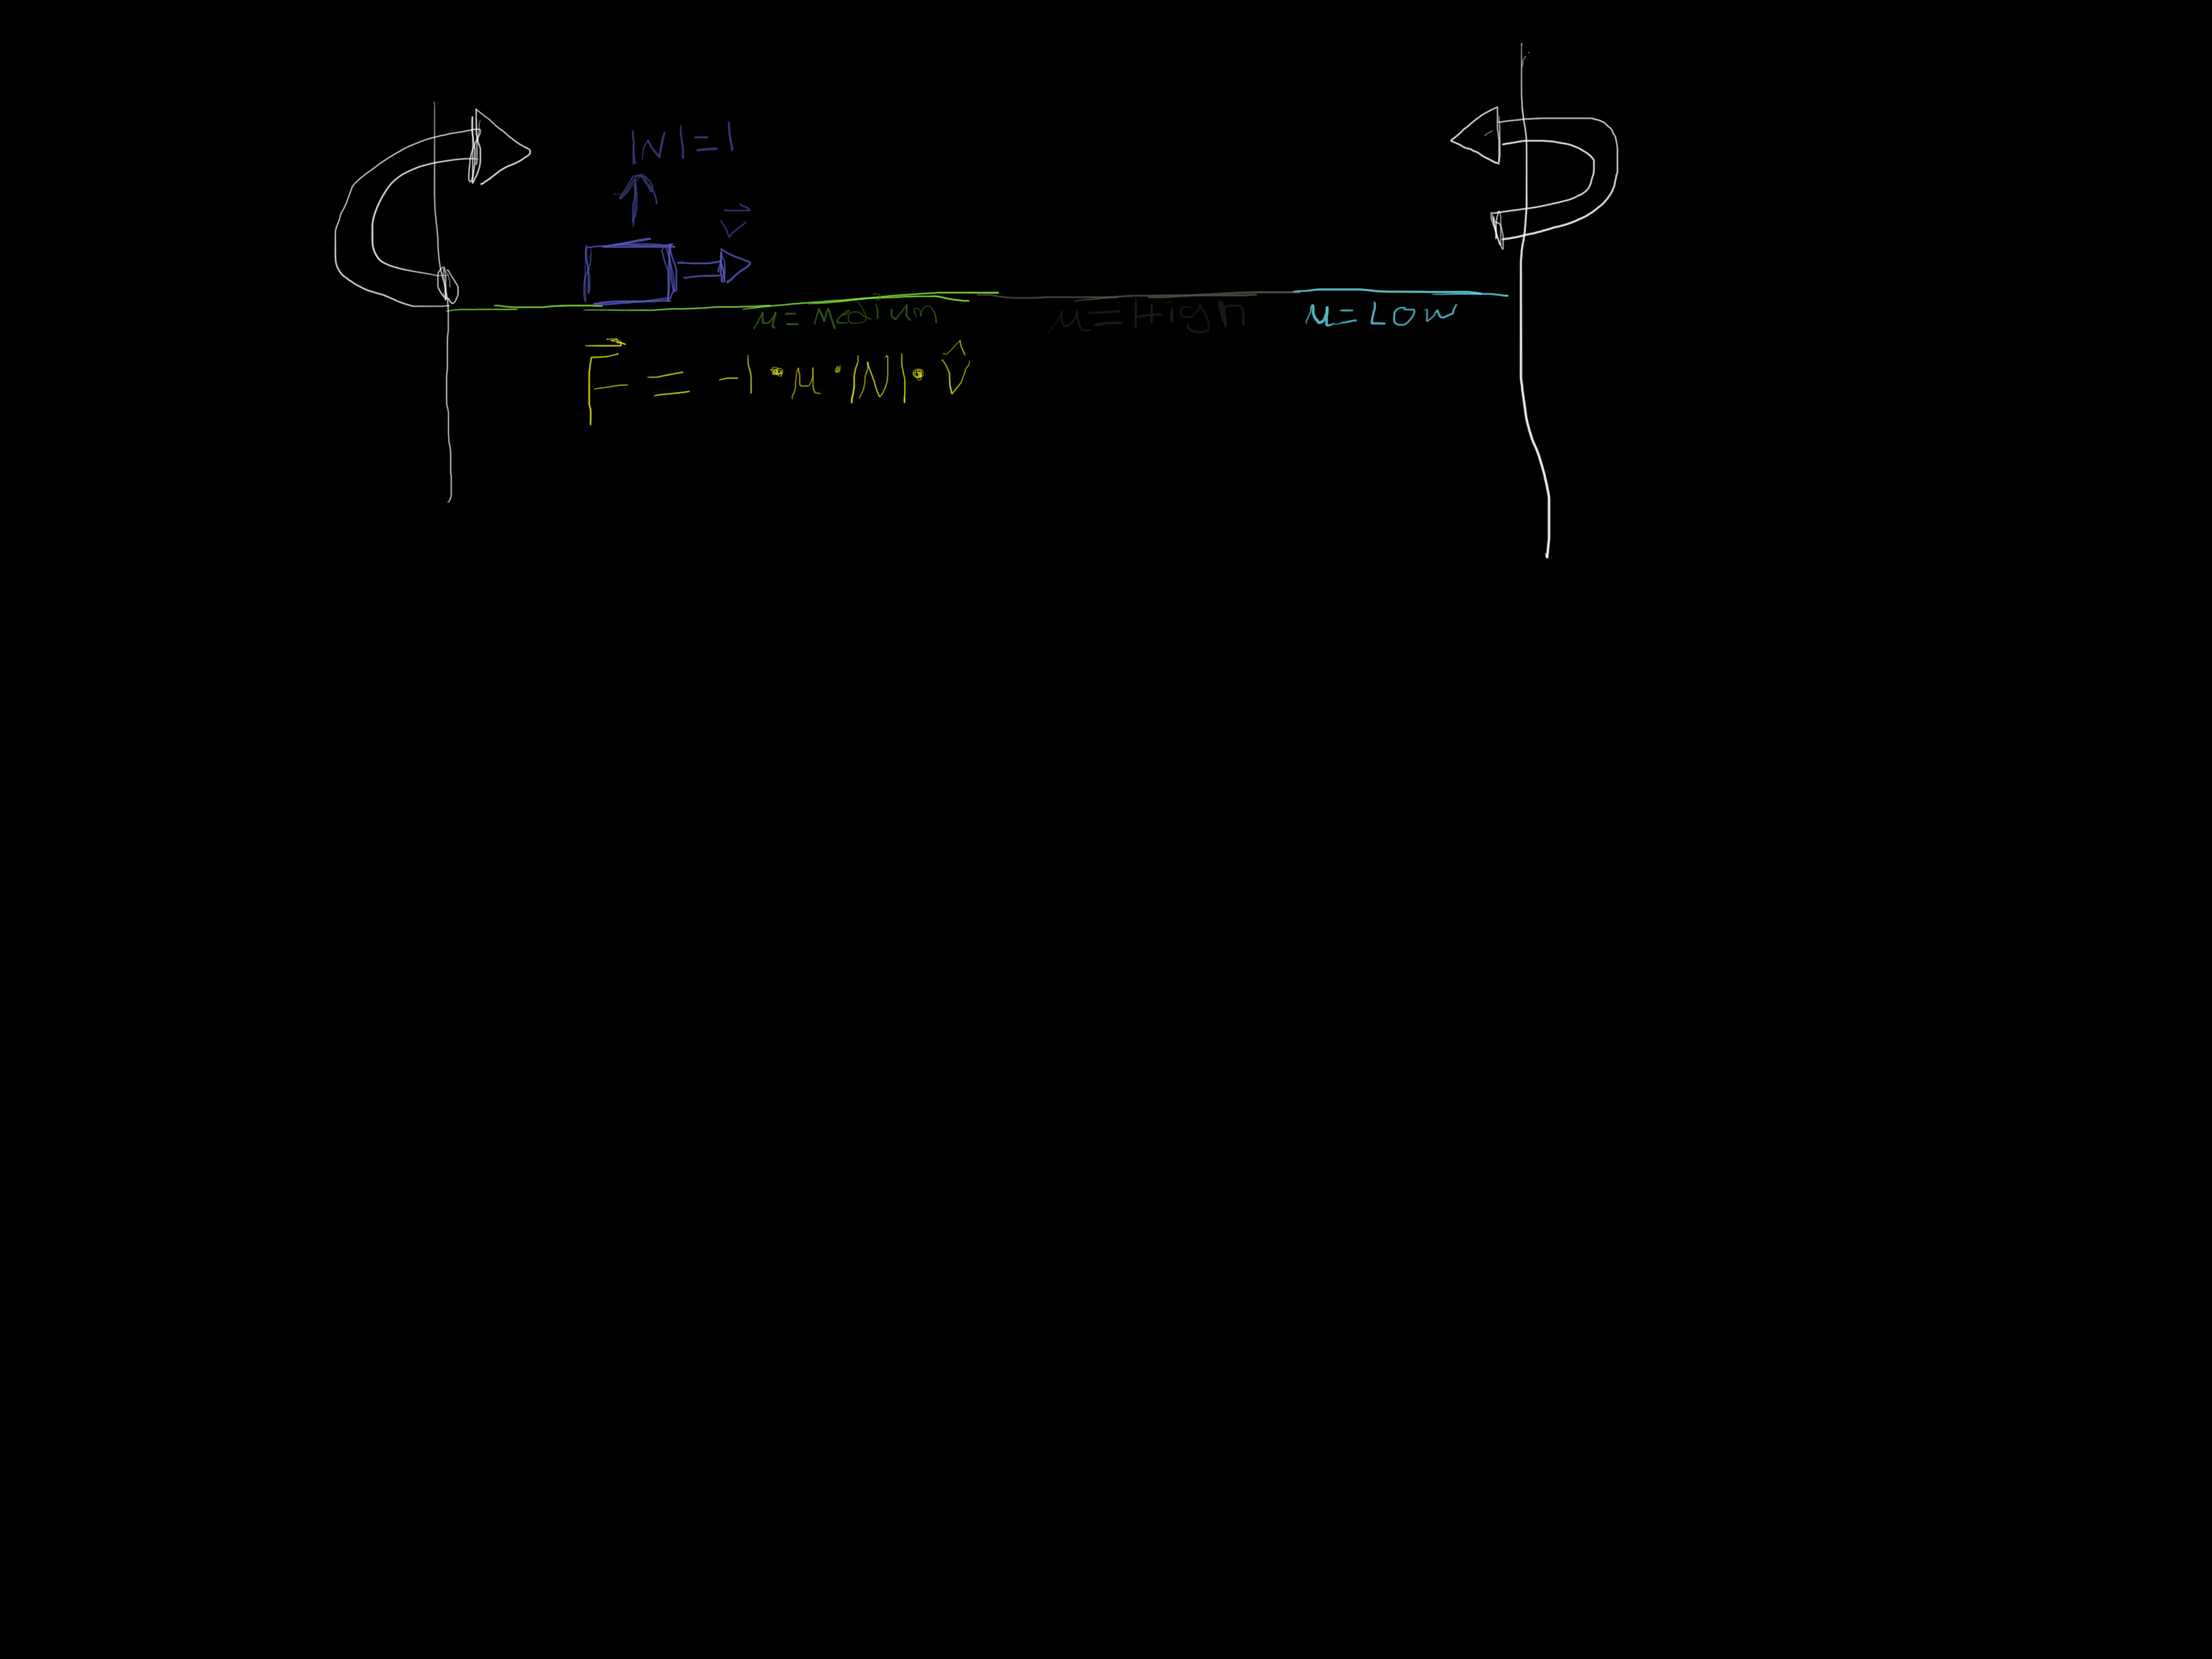 |N|=1
v⃗
μ=Medium
μ=High
μ=Low
F⃗ = -1·μ·|N|·v̂